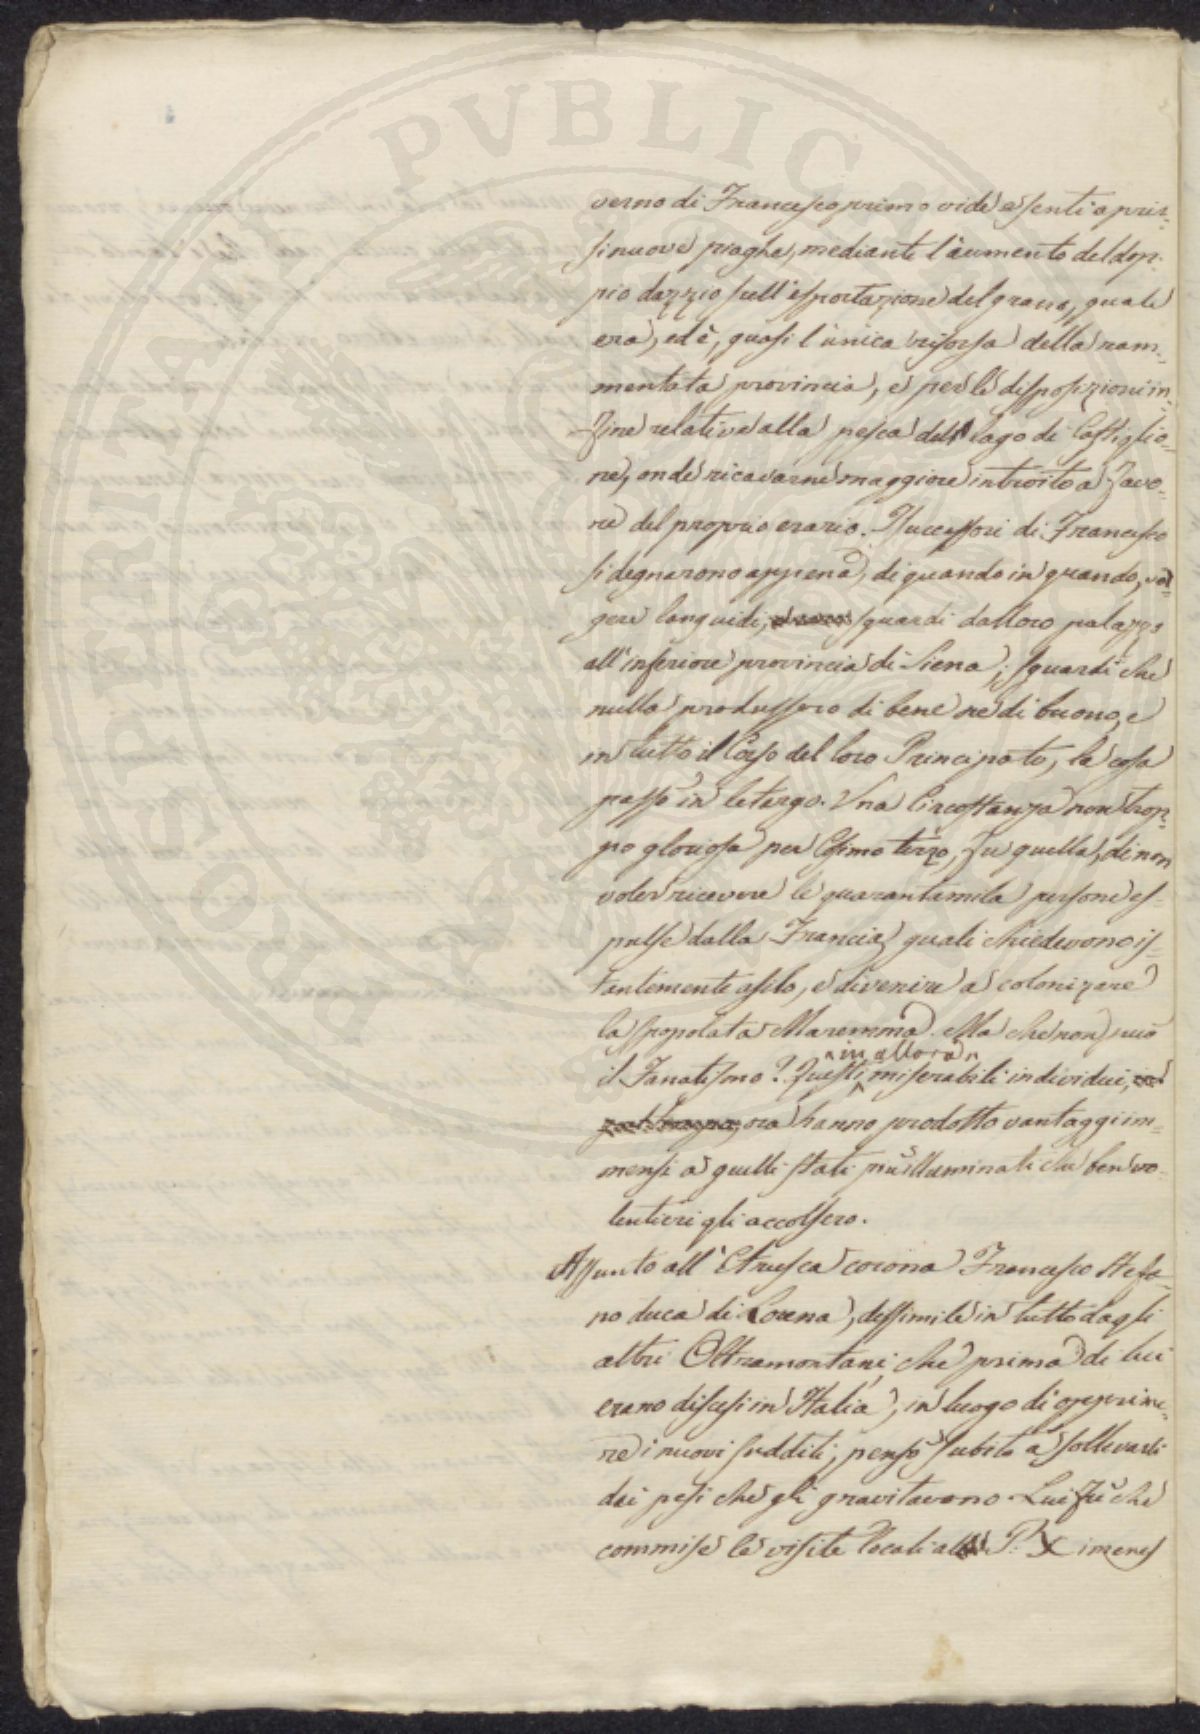 PVBLICAE
PROSPERITATI
verno di Francesco primo vide e sentì aprir-
si nuove piaghe, mediante l'aumento del dop-
pio dazzio sull'esportazione del grano, quale
era, ed è, quasi l'unica risorsa della ram-
mentata provincia, e per le disposizioni in-
fine relative alla pesca del lago di Castiglio-
ne, onde ricavarne maggiore introito a favo-
re del proprio erario. I successori di Francesco
si degnarono appena, di quando in quando, vol-
gere languidi, sguardi dal loro palazzo
all'inferiore provincia di Siena; sguardi che
nulla produssero di bene nè di buono, e
in tutto il Corso del loro Principato, la cosa
passò in letargo. Una Circostanza non trop-
po gloriosa per Cosimo terzo, fu quella, di non
voler ricevere le quarantamila persone es-
pulse dalla Francia, quali chiedevono is-
tantemente asilo, e divenire a colonizare
la spopolata Maremma. Ma che non può
il Fanatismo? Questi in allora miserabili individui,
ora hanno prodotto vantaggi im-
mensi a quelli stati più illuminati che ben vo-
lentieri gli accolsero.
Assunto all'Etrusca corona Francesco Stefa-
no duca di Lorena, dissimile in tutto dagli
altri Oltramontani, che prima di lui
erano discesi in Italia, in luogo di opprime-
re i nuovi sudditi, pensò subito a sollevarli
dai pesi che gli gravitavono. Lui fù che
commise le visite locali al P. Ximenes